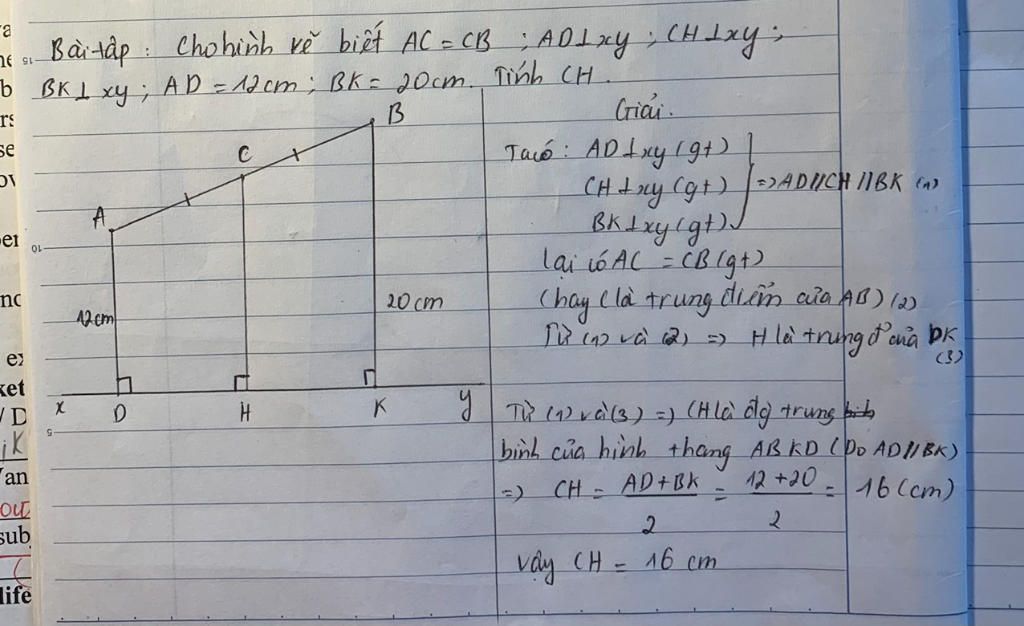 Bài tập : Cho hình vẽ biết AC = CB ; AD⊥xy ; CH⊥xy ;
BK⊥xy ; AD = 12cm ; BK = 20cm. Tính CH.
Giải.
Ta có : AD⊥xy (gt)
CH⊥xy (gt) => AD//CH//BK (1)
BK⊥xy (gt)
lại có AC = CB (gt)
(hay C là trung điểm của AB) (2)
Từ (1) và (2) => H là trung đ' của DK
(3)
Từ (1) và (3) => CH là đg trung
bình của hình thang ABKD (Do AD//BK)
=> CH = AD+BK / 2 = 12+20 / 2 = 16 (cm)
Vậy CH = 16 cm
A
C
B
12cm
20cm
x
D
H
K
y
10
5
15
ket
/ D
iK
an
out
sub
life